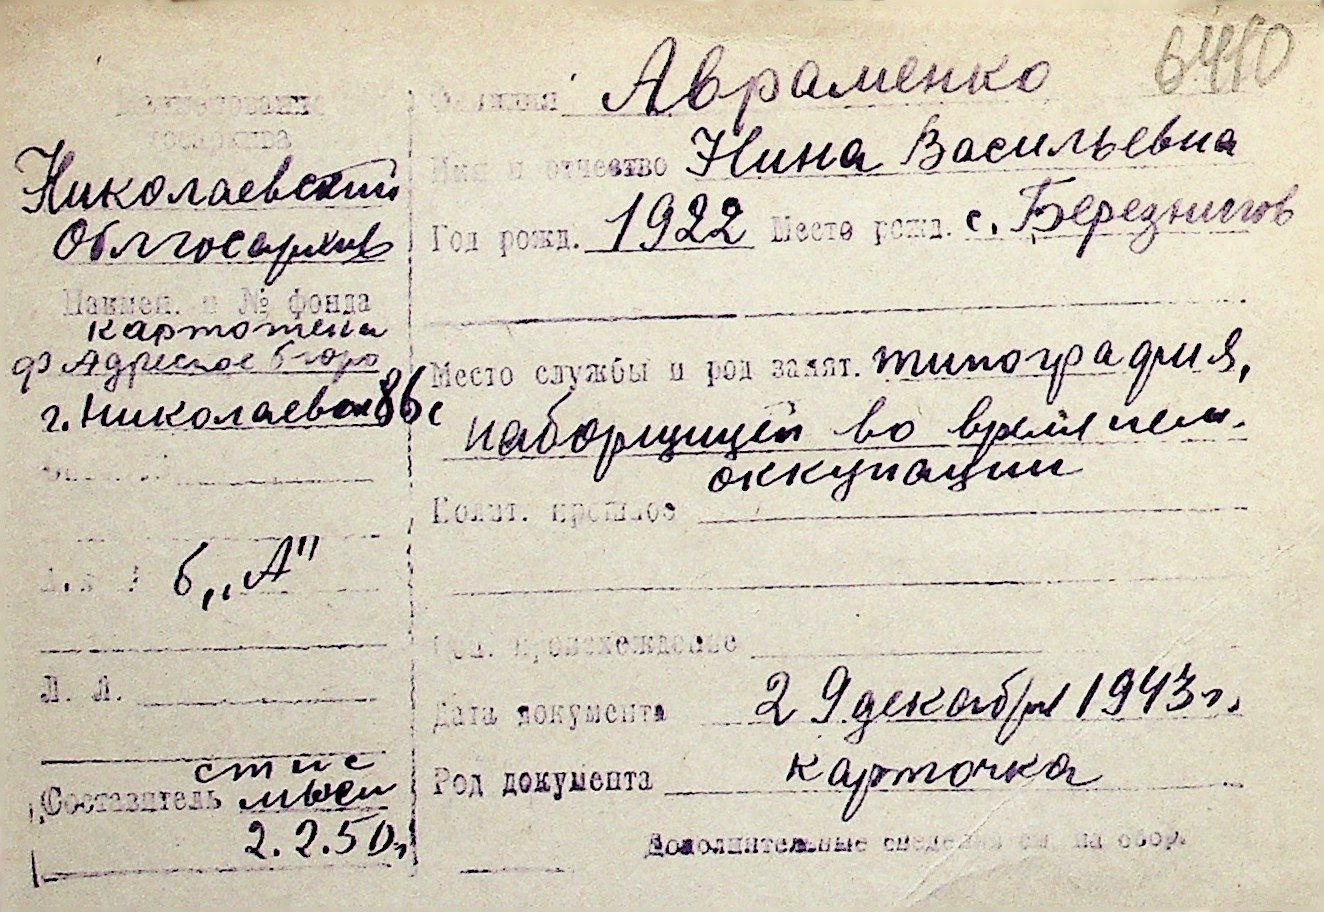 6440
Наименование
госархива
Николаевский
Облгосархив
Наимен. и № фонда
картотека
ф Адресное бюро
г. Николаева
Л. Л.
б „А"
стис
Составитель
2.2.50г.
Фамилия Авраменко
Имя и отчество Нина Васильевна
Год рожд. 1922 Место рожд. с. Березнигов
Место службы и род занят. типография,
наборщицей во время нем.
оккупации
Полит. прошлое
Соц. происхождение
Дата документа 29 декабря 1943 г.
Род документа карточка
Дополнительные сведения см. на обор.